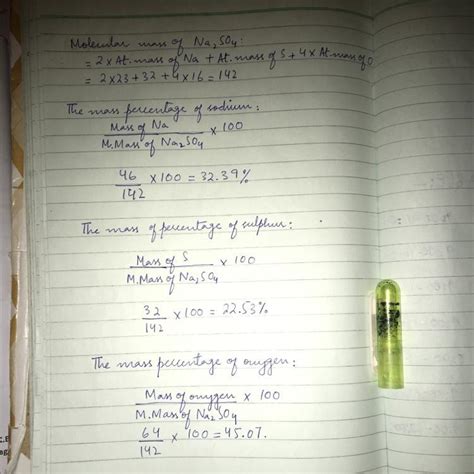 Molecular mass of Na₂SO₄:
= 2 x At. mass of Na + At. mass of S + 4 x At. mass of O
= 2 x 23 + 32 + 4 x 16 = 142
The mass percentage of sodium:
Mass of Na
M.Mass of Na₂SO₄ x 100
46
142 x 100 = 32.39%
The mass of percentage of sulphur:
Mass of S
M.Mass of Na₂SO₄ x 100
32
142 x 100 = 22.53%
The mass percentage of oxygen:
Mass of oxygen x 100
M.Mass of Na₂SO₄
64
142 x 100 = 45.07.